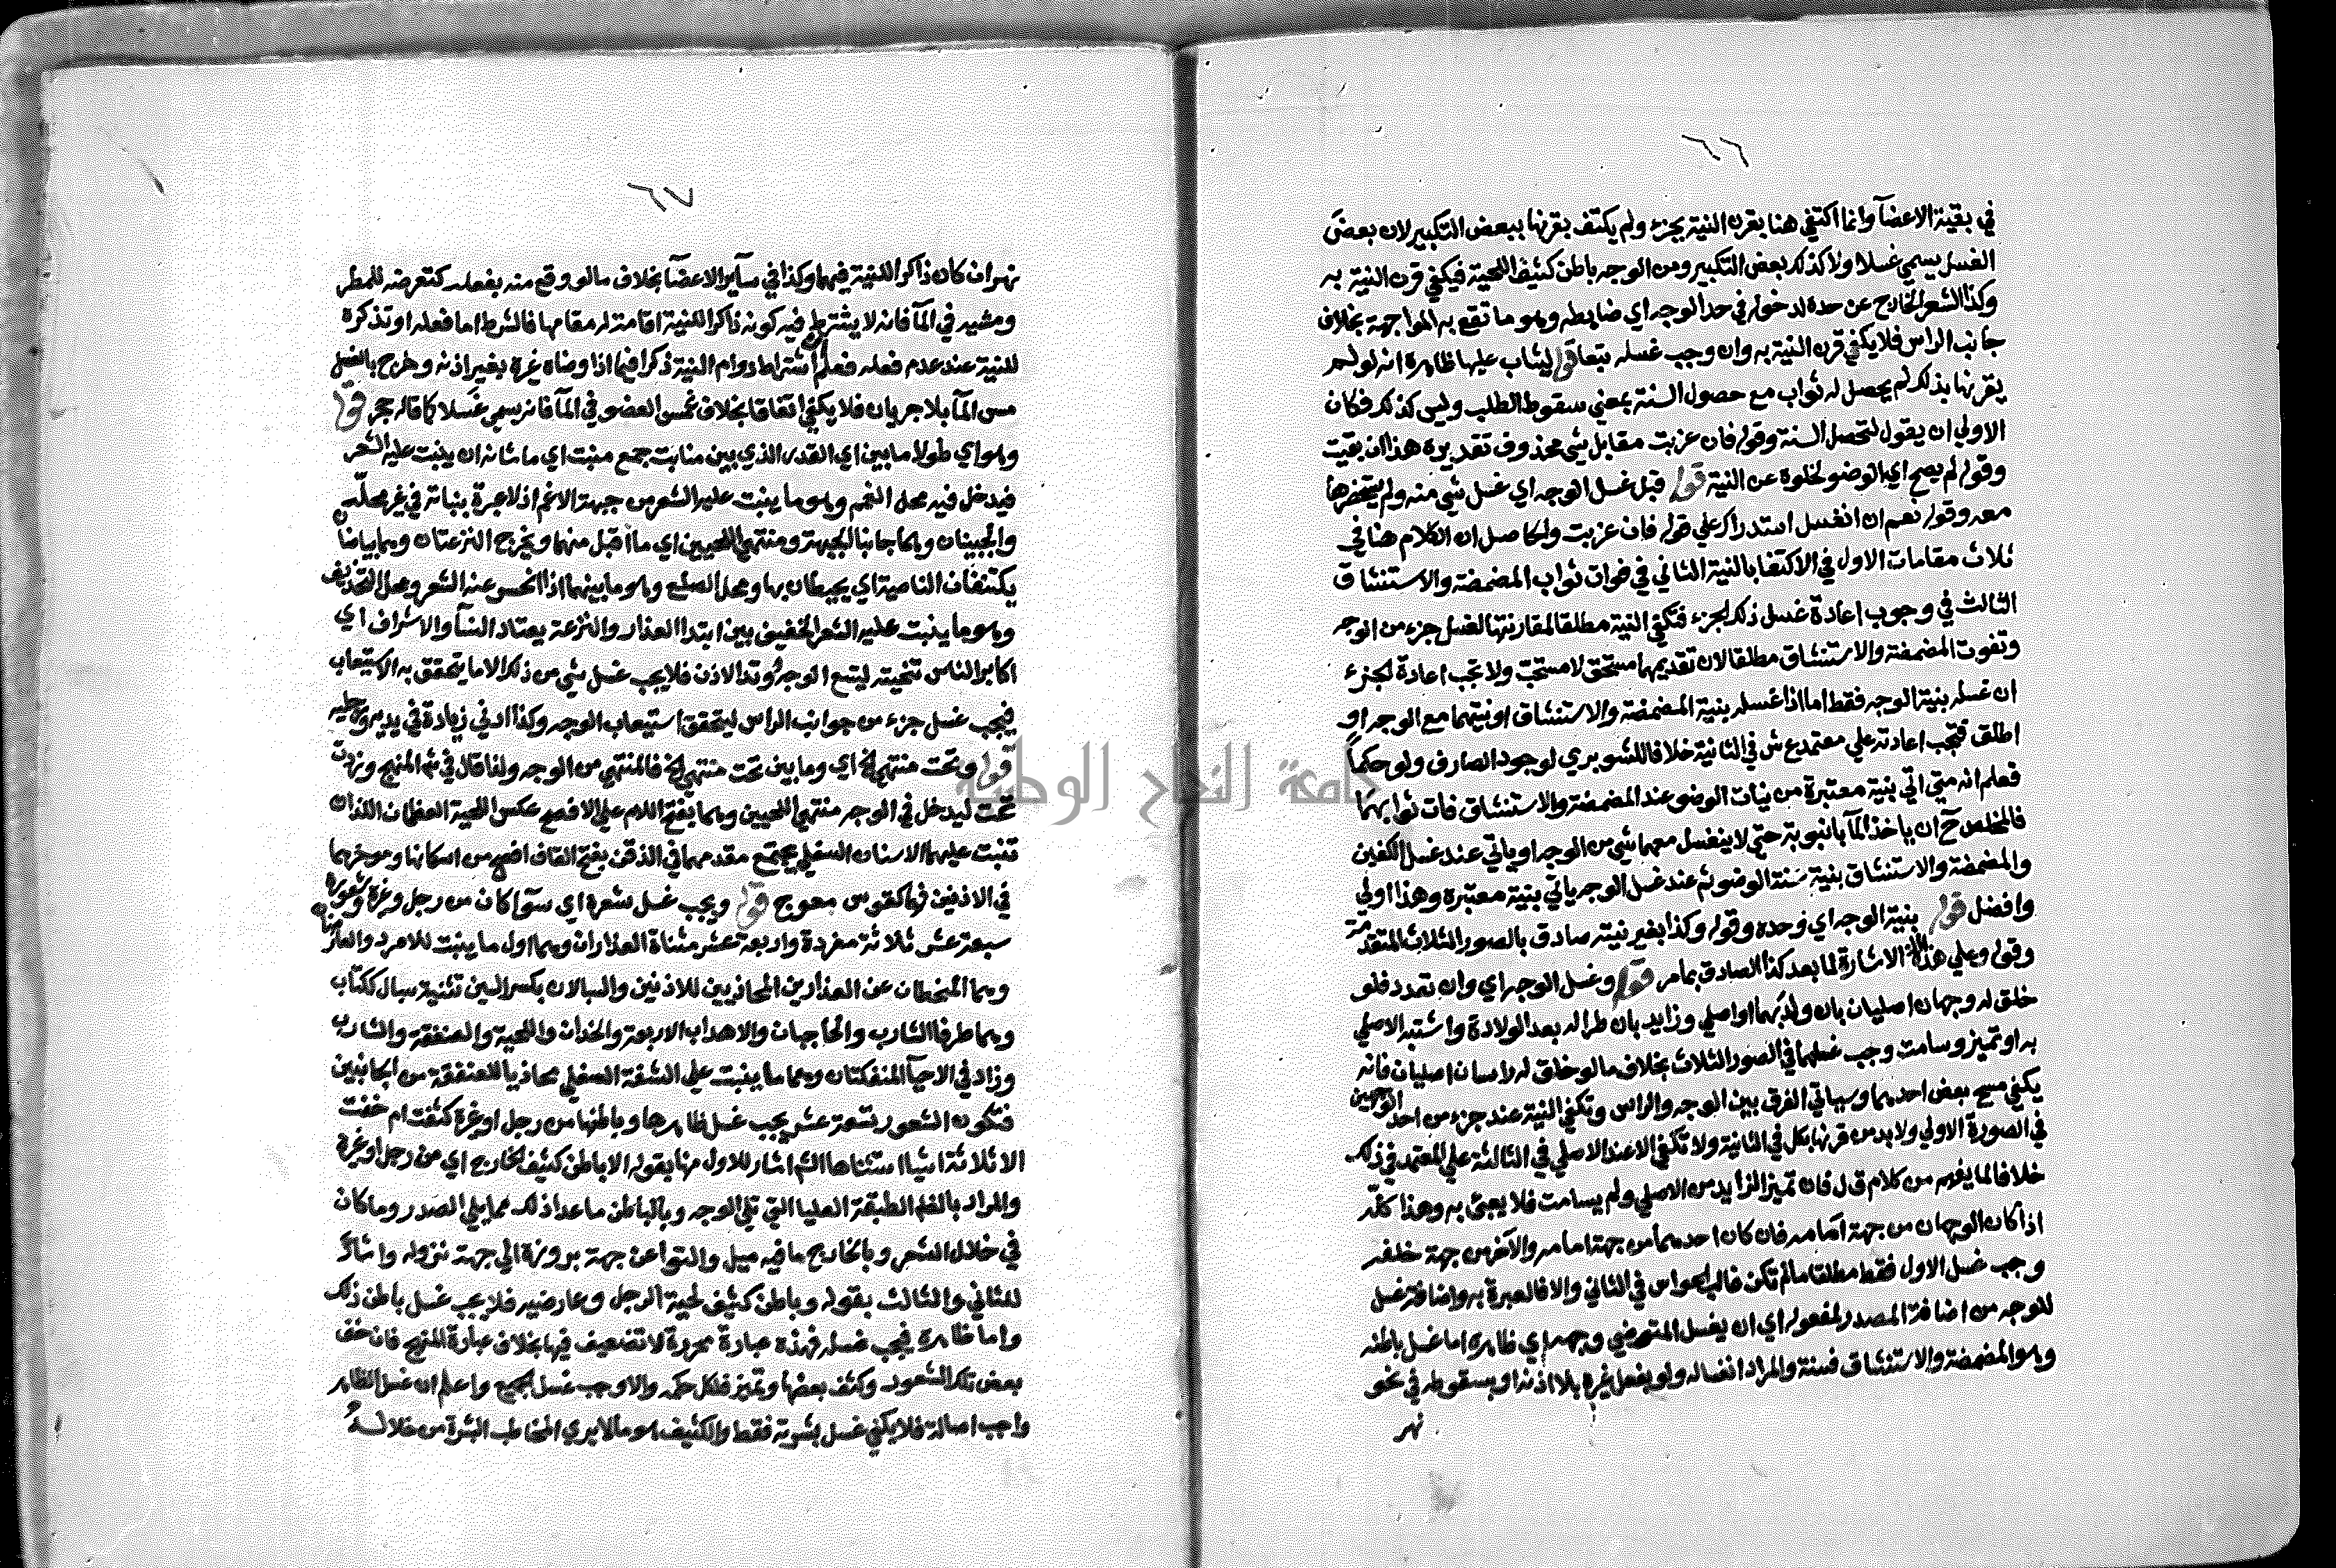 ٦٦
في بقية الاعضآ وانما اكتفي هنا بقرن النية بجزء ولم يكتف بقرنها ببعض التكبير لان بعض
الغسل يسمي غسلا ولا كذلك بعض التكبير ومن الوجه باطن كثيف اللحية فيكفي قرن النية به
وكذا الشعر الخارج عن حده لدخوله في حد الوجه اي ضابطه وهو ما تقع به المواجهة بخلاف
جانب الراس فلا يكفي قرن النية به وان وجب غسله تبعا قوله ليثاب عليها ظاهره انه لو لم
يقرنها بذلك لم يحصل له ثواب مع حصول السنة بمعني سقوط الطلب وليس كذلك فكان
الاولي ان يقول لتحصل السنة وقوله فان عزبت مقابل شي محذوف تقديره هذا ان بقيت
وقوله لم يصح اي الوضو لخلوه عن النية قوله قبل غسل الوجه اي غسل شي منه ولم يستحضرها
معه وقوله نعم ان انغسل استدراك علي قوله فان عزبت والحاصل ان الكلام هنا في
ثلاث مقامات الاول في الاكتفا بالنية الثاني في فوات ثواب المضمضة والاستنشاق
الثالث في وجوب اعادة غسل ذلك الجزء فتكفي النية مطلقا لمقارنتها لغسل جزء من الوجه
وتفوت المضمضة والاستنشاق مطلقا لان تقديمهما مستحق لا مستحب ولا تجب اعادة الجزء
ان غسله بنية الوجه فقط اما اذا غسله بنية المضمضة والاستنشاق او نيتهما مع الوجه او
اطلق فتجب اعادته علي معتمد ع ش في الثانية خلافا للشوبري لوجود الصارف ولو حكما
فعلم انه متي اتي بنية معتبرة من نيات الوضو عند المضمضة والاستنشاق فات ثوابهما
فالمخلص ح ان ياخذ المآ بانبوبة حتي لا ينغسل معهما شي من الوجه او ياتي عند غسل الكفين
والمضمضة والاستنشاق بنية سنة الوضو ثم عند غسل الوجه ياتي بنية معتبره وهذا اولي
وافضل قوله بنية الوجه اي وحده وقوله وكذا بغير نيته صادق بالصور الثلاث المتقدمة
وقوله وعلي هذا الاشارة لما بعد كذا الصادق بما مر قوله وغسل الوجه اي وان تعدد فلو
خلق له وجهان اصليان بان ولد بهما او اصلي وزايد بان طرا له بعد الولادة واشتبه الاصلي
به او تميز وسامت وجب غسلهما في الصور الثلاث بخلاف ما لو خلق له راسان اصليان فانه
يكفي مسح بعض احدهما وسياتي الفرق بين الوجه والراس وتكفي النية عند جزء من احد الوجهين
في الصورة الاولي ولا بد من قرنها بكل في الثانية ولا تكفي الا عند الاصلي في الثالثة علي المعتمد في ذلك
خلافا لما يفهم من كلام ق ل فان تميز الزايد من الاصلي ولم يسامت فلا يعبئ به وهذا كله
اذا كان الوجهان من جهة امامه فان كان احدهما من جهة امامه والآخر من جهة خلفه
وجب غسل الاول فقط مطلقا ما لم تكن غالب الحواس في الثاني والا فالعبرة به واضافة غسل
للوجه من اضافة المصدر لمفعوله اي ان يغسل المتوضي وجهه اي ظاهره اما غسل باطنه
وهو المضمضة والاستنشاق فسنة والمراد انغساله ولو بفعل غيره بلا اذنه او بسقوطه في نحو
نهر
٦٧
نهر ان كان ذاكرا للنية فيهما وكذا في ساير الاعضآ بخلاف ما لو وقع منه بفعله كتعرضه للمطر
ومشيه في المآ فانه لا يشترط فيه كونه ذاكرا للنية اقامة له مقامها فالشرط اما فعله او تذكره
للنية عند عدم فعله فعلم اشتراط دوام النية ذكرا فيما اذا وضاه غيره بغير اذنه وخرج بالغسل
مس المآ بلا جريان فلا يكفي اتفاقا بخلاف غمس العضو في المآ فانه يسمي غسلا كما قاله حجر قوله
وهو اي طولا ما بين اي القدر الذي بين منابت جمع منبت اي ما شانه ان ينبت عليه الشعر
فيدخل فيه محل الغمم وهو ما ينبت عليه الشعر من جبهة الاغم اذ لا عبرة بنباته في غير محله
والجبينان وهما جانبا الجبهة ومنتهي اللحيين اي ما اقبل منهما ويخرج النزعتان وهما بياضان
يكتنفان الناصية اي يحيطان بها ومحل الصلع وهو ما بينهما اذا انحسر عنه الشعر ومحل التحذيف
وهو ما ينبت عليه الشعر الخفيف بين ابتدا العذار والنزعة يعتاد النسآ والاشراف اي
اكابر الناس تنحيته ليتسع الوجه ووتد الاذن فلا يجب غسل شي من ذلك الا ما يتحقق به الاستيعاب
فيجب غسل جزء من جوانب الراس ليتحقق استيعاب الوجه وكذا ادني زيادة في يديه ورجليه
قوله وتحت منتهي الخ اي وما بين تحت منتهي الخ فالمنتهي من الوجه ولذا قال في شم المنهج وزدت
تحت ليدخل في الوجه منتهي اللحيين وهما بفتح اللام علي الافصح عكس اللحية العظمان اللذان
تنبت عليهما الاسنان السفلي يجتمع مقدمهما في الذقن بفتح القاف افصح من اسكانها وموخرهما
في الاذنين فهما كقوس معوج قوله ويجب غسل شعره اي سوآ كان من رجل وغيره وشعوره
سبعة عشر ثلاثة مفردة واربعة عشر مثناة العذاران وهما اول ما ينبت للامرد والعارضان
وهما المنحطان عن العذارين المحاذيين للاذنين والسبالان بكسر السين تثنية سبال ككتاب
وهما طرفا الشارب والحاجبان والاهداب الاربعة والخدان واللحية والعنفقة والشارب
وزاد في الاحيآ المنفكتان وهما ما ينبت علي الشفة السفلي محاذيا للعنفقة من الجانبين
فتكون الشعور تسعة عشر يجب غسل ظاهرها وباطنها من رجل او غيره كثفت ام خفت
الا ثلاثة اشيا استثناها الشم اشار للاول منها بقوله الا باطن كثيف الخارج اي من رجل او غيره
والمراد بالظاهر الطبقة العليا التي تلي الوجه وبالباطن ما عدا ذلك مما يلي الصدر وما كان
في خلال الشعر وبالخارج ما فيه ميل والتوا عن جهة بروزه الي جهة نزوله واشار
للثاني والثالث بقوله وباطن كثيف لحية الرجل وعارضيه فلا يجب غسل باطن ذلك
واما ظاهره فيجب غسله فهذه عبارة محررة لا تضعيف فيها بخلاف عبارة المنهج فان خف
بعض تلك الشعور وكثف بعضها وتميز فلكل حكمه والا وجب غسل الجميع واعلم ان غسل الظاهر
واجب اصالة فلا يكفي غسل بشرته فقط والكثيف هو ما لا يري المخاطب البشرة من خلاله
جامعة النجاح الوطنية